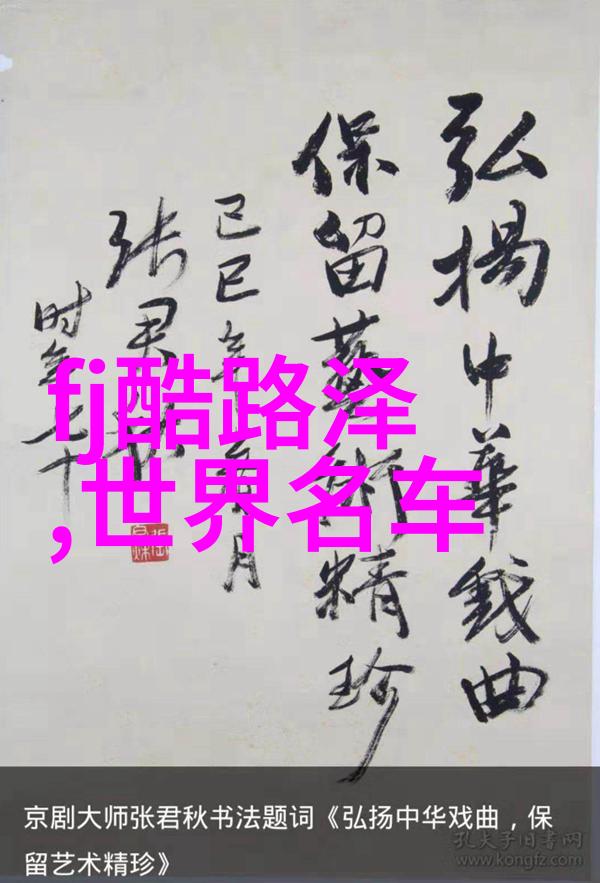 弘揚中华戏曲
保留藝術精珍
己巳年五月
张君秋
时年七十
fj酷路泽
,世界名车
京剧大师张君秋书法题词《弘扬中华戏曲，保
留艺术精珍》
孔夫子旧书网
www.kongfz.com